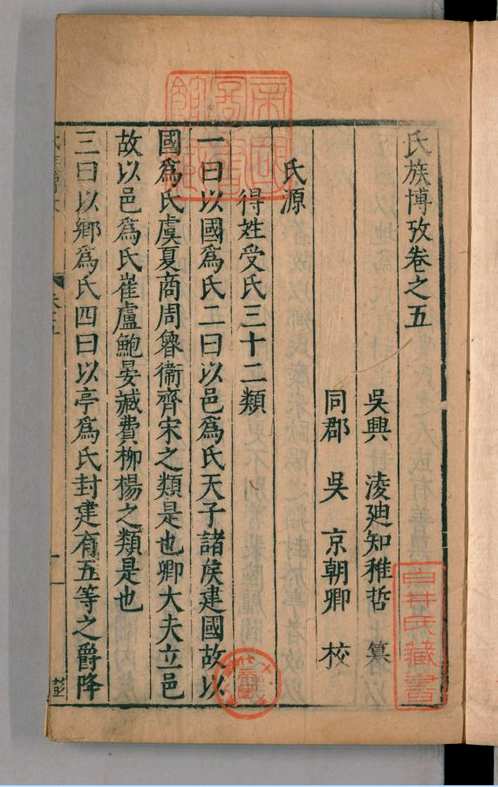 氏族博攷卷之五
吳興 淩廸知稚哲 纂
同郡 吳 京朝卿 校
氏源
得姓受氏三十二類
一曰以國爲氏二曰以邑爲氏天子諸侯建國故以
國爲氏虞夏商周魯衞齊宋之類是也卿大夫立邑
故以邑爲氏崔盧鮑晏臧費柳楊之類是也
三曰以鄉爲氏四曰以亭爲氏封建有五等之爵降
臼井氏藏書